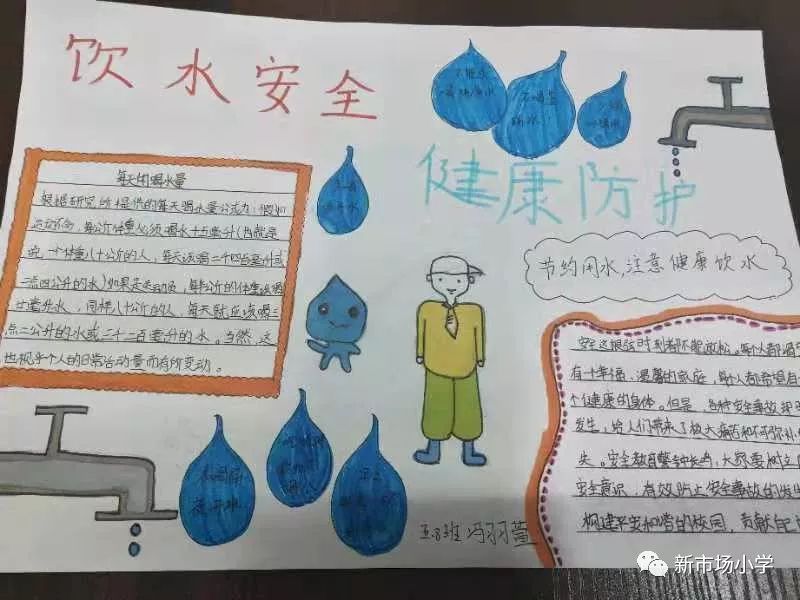 饮水安全
健康防护
每天的喝水量
根据研究所提供的每天喝水量公式为:假如
运动不多,每公斤体重必须喝水十五毫升(也就是
说,一个体重八十公斤的人,每天该喝二千四百毫升或
二点四公升的水)如果是运动员,每公斤的体重该喝
廿毫升水,同样八十公斤的人,每天就应该喝三
点二公升的水或三千二百毫升的水。当然,这
也视乎个人的日常活动量而有所变动。
节约用水,注意健康饮水
安全这根弦时刻都不能放松。每个人都渴
有一个幸福、温馨的家庭,每个人都希望自
个健康的身体。但是,各种安全事故却
发生,给人们带来了极大痛苦和不可弥补
失。安全教育警钟长鸣,大家要树立
安全意识,有效防止安全事故的发
构建平安和谐的校园,贡献自
五.8班 冯羽萱
新市场小学